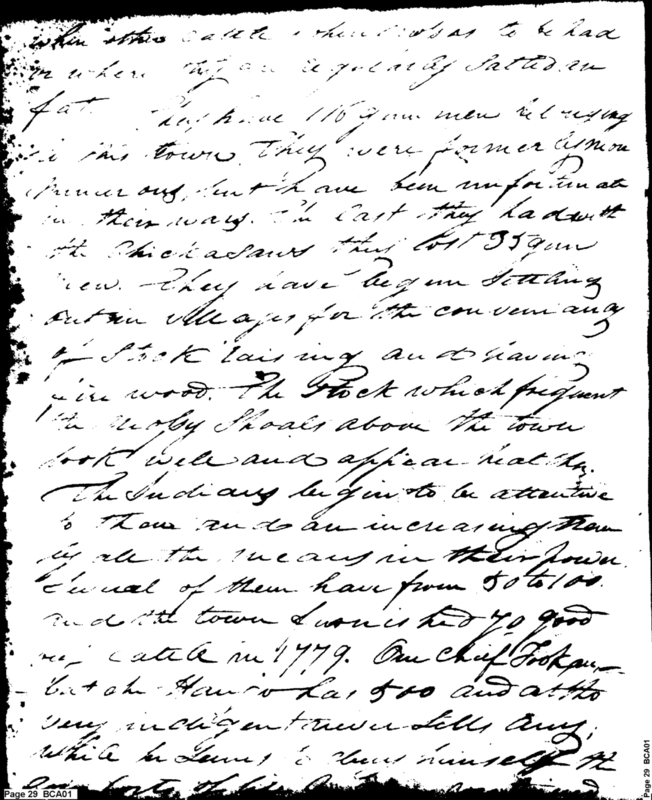 when other cattle when        was to be had
or where they are regularly salted are
fat. They have 116 gun men belonging
to this town They were formerly more
numerous, but have been unfortunate
in their wars. In last they had with
the Chickasaws they lost 35 gun
men. They have begun settling
out in villages for the conveniency
of Stock raising and having
fire wood. The Stock which frequent
the mossy Shoals above the town
look well and appear healthy.
The Indians begin to be attentive
to them and are increasing them
by all the means in their power.
Several of them have from 50 to 100.
and the town furnished 70 good
cattle in 1779. One chief Took
Hau has 500 and altho
very indigent never sells any;
while he seems to deny himself the
comforts of life
Page 29 BCA01
Page 29 BCA01